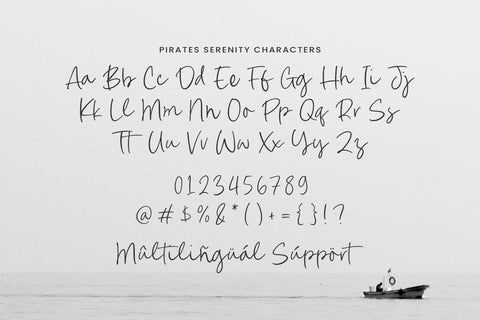 PIRATES SERENITY CHARACTERS
Aa Bb Cc Dd Ee Ff Gg Hh Ii Jj
Kk Ll Mm Nn Oo Pp Qq Rr Ss
Tt Uu Vv Ww Xx Yy Zz
0123456789
@ # $ % & * ( ) + = { } ! ?
Múltilíñgüál Súppört